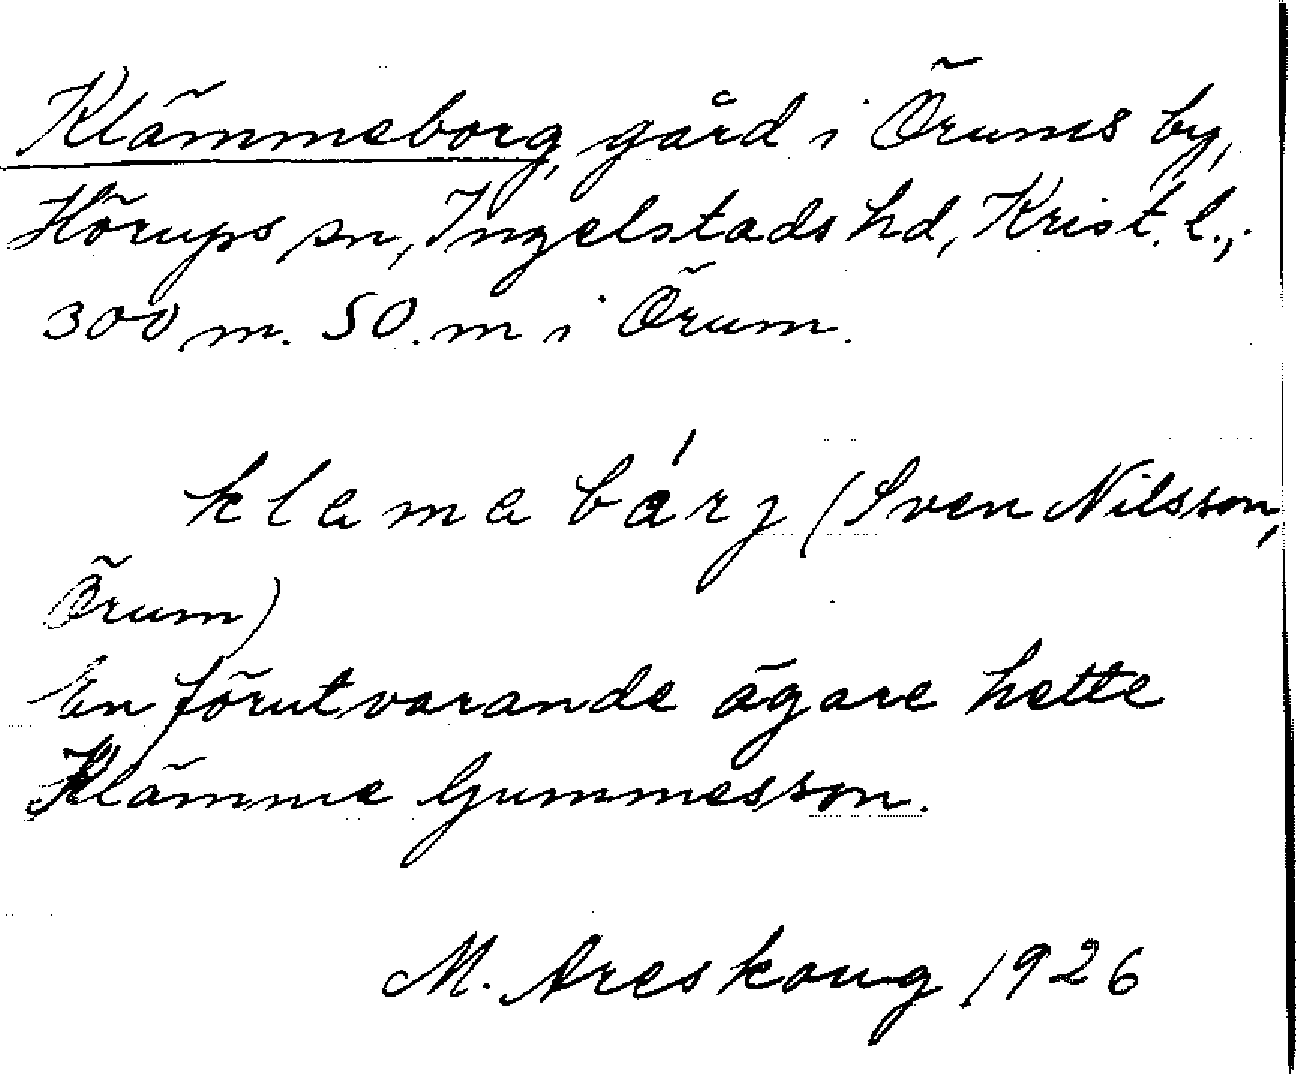 Klämmeborg, gård i Örums by,
Hörups sn, Ingelstads hd, Krist. l.,
300 m. SO. m i Örum.
klamabárj (Sven Nilsson,
Örum)
En förutvarande ägare hette
Klämme Gummesson.
M. Areskoug 1926